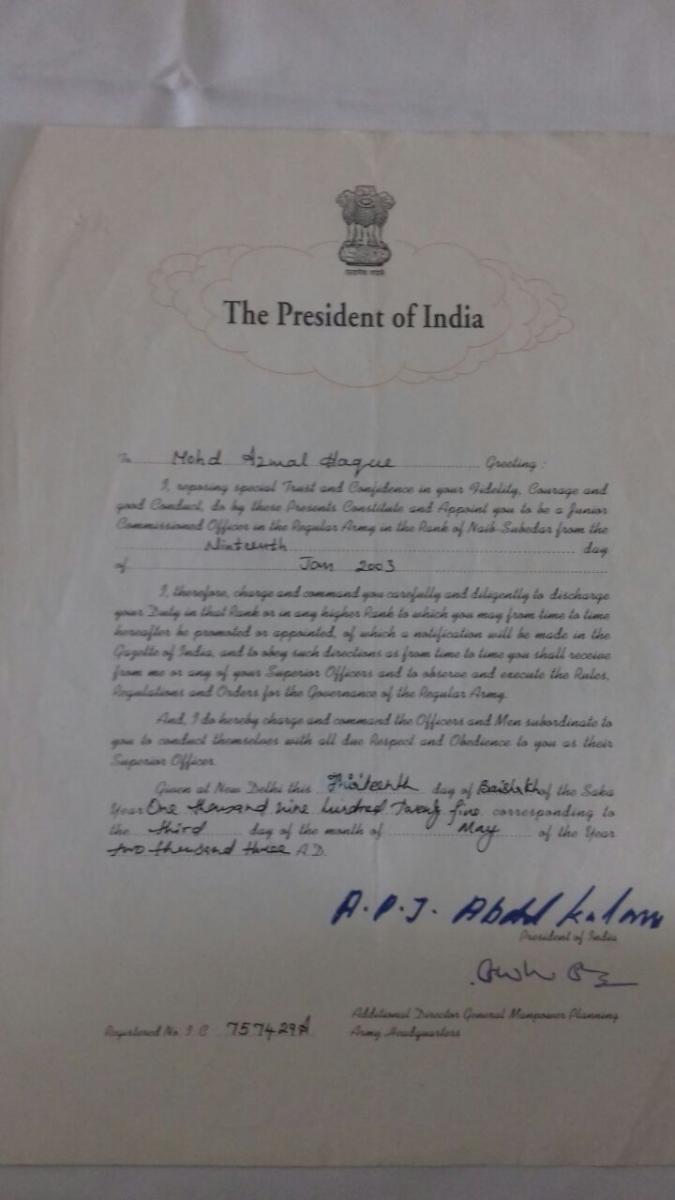 The President of India
To Mohd Azmal Haque Greeting :
I, reposing special Trust and Confidence in your Fidelity, Courage and
good Conduct, do by these Presents Constitute and Appoint you to be a Junior
Commissioned Officer in the Regular Army in the Rank of Naib Subedar from the
Ninteenth day
of Jan 2003
I, therefore, charge and command you carefully and diligently to discharge
your Duty in that Rank or in any higher Rank to which you may from time to time
hereafter be promoted or appointed, of which a notification will be made in the
Gazette of India, and to obey such directions as from time to time you shall receive
from me or any of your Superior Officers and to observe and execute the Rules,
Regulations and Orders for the Governance of the Regular Army.
And, I do hereby charge and command the Officers and Men subordinate to
you to conduct themselves with all due Respect and Obedience to you as their
Superior Officer.
Given at New Delhi this Thirteenth day of Baishakh of the Saka
Year One thousand nine hundred twenty five corresponding to
the third day of the month of May of the Year
two thousand three A.D.
A.P.J. Abdul Kalam
President of India
Additional Director General Manpower Planning
Registered No. J.C 757429A Army Headquarters